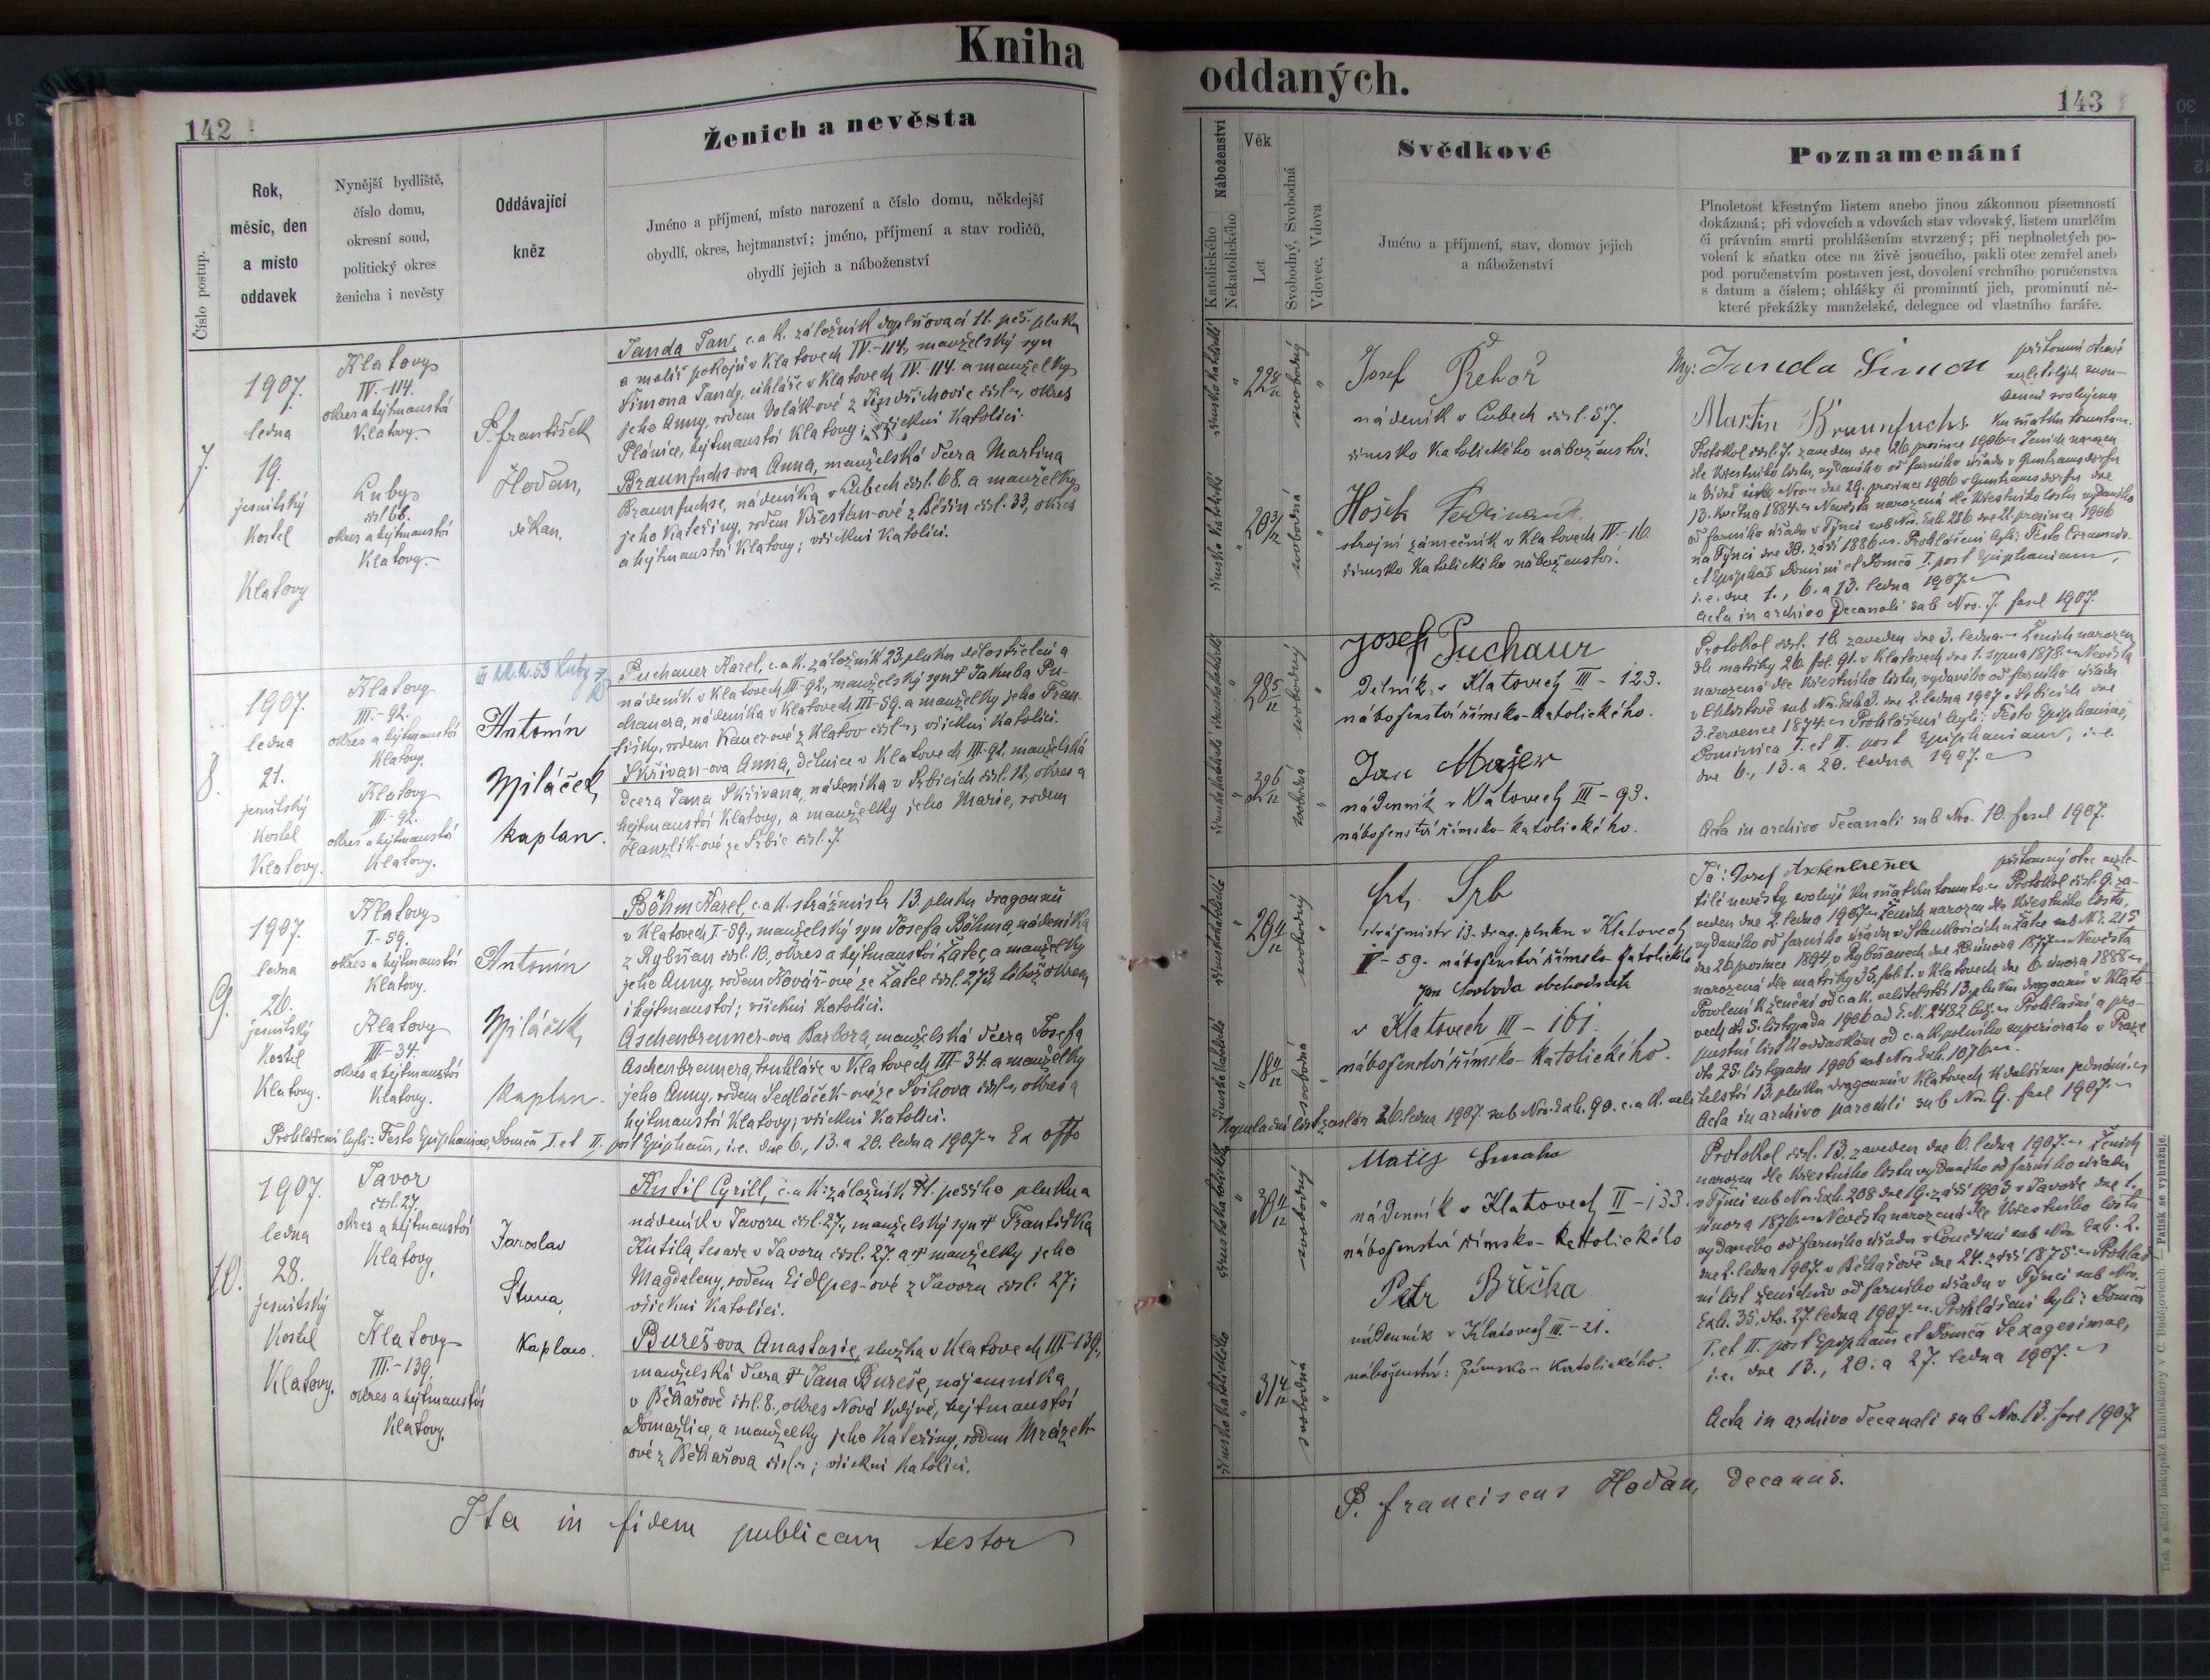 Kniha
142
Číslo postup.
Rok,
měsíc, den
a místo
oddavek
Nynější bydliště,
číslo domu,
okresní soud,
politický okres
ženicha i nevěsty
Oddávající
kněz
Ženich a nevěsta
Jméno a příjmení, místo narození a číslo domu, někdejší
obydlí, okres, hejtmanství; jméno, příjmení a stav rodičů,
obydlí jejich a náboženství
7.
1907.
ledna
19.
jesuitský
Kostel
Klatovy
Klatovy
IV.-114.
okres a hejtmanství
Klatovy.
Luby
čísl. 68.
okres a hejtmanství
Klatovy.
P. František
Hoďan,
děkan.
Janda Jan, c. a k. záložník doplňovací 11. peš. pluku
a malíř pokojů v Klatovech IV.-114., manželský syn
Šimona Jandy, cihláře v Klatovech IV.-114. a manželky
jeho Anny, rodem Volák-ové z Jindřichovic čísl –, okres
Plánice, hejtmanství Klatovy; všickni Katolíci.
Braunfuchs-ova Anna, manželská dcera Martina
Braunfuchse, nádeníka v Lubech čísl. 68. a manželky
jeho Kateřiny, rodem Křesťan-ové z Běšin čísl. 33, okres
a hejtmanství Klatovy; všickni Katolíci.
8.
1907.
ledna
21.
jesuitský
Kostel
Klatovy.
Klatovy
III.-92.
okres a hejtmanství
Klatovy.
Klatovy
III.-92.
okres a hejtmanství
Klatovy.
Antonín
Miláček,
kaplan.
Puchauer Karel, c. a k. záložník 23. pluku dělostřelců a
nádeník v Klatovech III-92., manželský syn † Jakuba Pu-
chauera, nádeníka v Klatovech III-59. a manželky jeho Fran-
tišky, rodem Kauer-ové z Klatov čísl –; všickni Katolíci.
Skřivan-ova Anna, dělnice v Klatovech III-92, manželská
dcera Jana Skřivana, nádeníka v Srbicích čísl. 12, okres a
hejtmanství Klatovy, a manželky jeho Marie, rodem
Hanzlík-ové ze Srbic čísl. 7.
9.
1907.
ledna
26.
jesuitský
Kostel
Klatovy.
Klatovy
I-59.
okres a hejtmanství
Klatovy.
Klatovy
III-34.
okres a hejtmanství
Klatovy.
Antonín
Miláček,
kaplan.
Böhm Karel, c. a k. strážmistr 13. pluku dragounů
v Klatovech I-59., manželský syn Josefa Böhma, nádeníka
z Rybňan čísl. 10, okres a hejtmanství Žatec, a manželky
jeho Anny, rodem Kovář-ové ze Žatce čísl. 273, téhož okresu
i hejtmanství; všickni Katolíci.
Aschenbrenner-ova Barbora, manželská dcera Josefa
Aschenbrennera, truhláře v Klatovech III-34. a manželky
jeho Anny, rodem Sedláček-ové ze Švihova čísl –, okres a
hejtmanství Klatovy; všickni Katolíci.
Prohlášení byli: Festo Epiphaniae, Domca I. et II. post Epiphan, i. e. dne 6., 13. a 20. ledna 1907. – Ex offo
10.
1907.
ledna
28.
jesuitský
Kostel
Klatovy.
Javor
čísl. 27.
okres a hejtmanství
Klatovy.
Klatovy
III.-139.
okres a hejtmanství
Klatovy.
Jaroslav
kaplan.
Kutil Cyrill, c. a k. záložník 11. pěšího pluku a
nádeník v Javoru čísl. 27., manželský syn † Františka
Kutila, tesaře v Javoru čísl. 27. a † manželky jeho
Magdaleny, rodem Eidlpes-ové z Javoru čísl. 27;
všickni Katolíci.
Bureš-ova Anastasie, služka v Klatovech III-139.,
manželská dcera † Jana Bureše, nájemníka
v Běhařově čísl. 8., okres Nová Kdyně, hejtmanství
Domažlice, a manželky jeho Kateřiny, rodem Mrázek-
ové z Běhařova čísl –; všickni Katolíci.
Ita in fidem publicam testor
oddaných.
143
Náboženství
Katolického
Nekatolického
Věk
Let
Svobodný, Svobodná
Vdovec, Vdova
Svědkové
Jméno a příjmení, stav, domov jejich
a náboženství
Poznamenání
Plnoletost křestným listem anebo jinou zákonnou písemností
dokázaná; při vdovcích a vdovách stav vdovský, listem umrlčím
či právním smrti prohlášením stvrzený; při neplnoletých po-
volení k sňatku otce na živě jsoucího, pakli otec zemřel aneb
pod poručenstvím postaven jest, dovolení vrchního poručenstva
s datum a číslem; ohlášky či prominutí jich, prominutí ně-
které překážky manželské, delegace od vlastního faráře.
římsko Katolické
22 8/12
svobodný
římsko Katolické
20 3/12
svobodná
Josef Řehoř
nádeník v Lubech čísl. 57.
římsko Katolického náboženství.
Hošek Ferdinand
strojní zámečník v Klatovech IV-16.
římsko Katolického náboženství.
My: Janda Šimon
přítomní otcové
nezletilých snou-
benců svolujeme
Martin Braunfuchs.
ku sňatku tomuto.
Protokol čísl. 7. zaveden dne 26. prosince 1906 – Ženich narozen
dle křestního listu, vydaného od farního úřadu v Guntramsdorfu
13. května 1884. – Nevěsta narozená dle křestního listu vydaného
od farního úřadu v Týnci sub Nro. Exh. 286 dne 22. prosince 1906
na Týnci dne 30. září 1886. – Prohlášení byli: Festo Circumcis.
et Epiphaň Domini et Domca I. post Epiphaniam,
i. e. dne 1., 6. a 13. ledna 1907. –
Acta in archivo Decanali sub Nro. 7. fasc 1907.
28 5/12
svobodný
32 6/12
svobodná
Josef Puchaur
Dělník v Klatovech III - 123.
náboženství římsko-katolického.
Jan Majer
nádenník v Klatovech III - 93.
náboženství římsko-katolického.
Protokol čísl. 10. zaveden dne 3. ledna – Ženich narozen
dle matriky 26. fol. 91. v Klatovech dne 1. srpna 1878. – Nevěsta
narozená dle křestního listu, vydaného od farního úřadu
v Chlistově sub Nro. Exh. 3. dne 2. ledna 1907 v Srbicích dne
3. července 1874. – Prohlášení byli: Festo Epiphaniae,
Dominica I. et II. post Epiphaniam, i. e.
dne 6., 13. a 20. ledna 1907. –
Acta in archivo decanali sub Nro. 10. fasc 1907.
29 11/12
svobodný
18 11/12
svobodná
Srb
strážmistr 13. drag. pluku v Klatovech
- 59. náboženství římsko-katolického
Jan Svoboda obchodník
v Klatovech III - 161.
náboženství římsko-katolického.
Já: Josef Aschenbrener
přítomný otec nezle-
tilé nevěsty svoluji ku sňatku tomuto – Protokol čísl. 9. za-
veden dne 2. ledna 1907. – Ženich narozen dle křestního listu,
vydaného od farního úřadu v Stankovicích u Žatce sub Nr. 215
dne 26. prosince 1894. v Rybňanech dne 20. února 1877 – Nevěsta
narozená dle matriky 35. fol. 1. v Klatovech dne 6. února 1888 –
Povolení k ženění od c. a k. velitelství 13. pluku dragounů v Klato-
vech dto 5. listopadu 1906 ad E. N. 2482 – Prohlašní a pro-
pustní list k oddavkám od c. a k. polního superiorátu v Praze
dto 25. listopadu 1906 sub Nro. Exh. 1076 –.
Kopulační list zaslán 26. ledna 1907 sub Nro. Exh. 90. c. a k. velitelství 13. pluku dragounů v Klatovech k dalšímu jednání. –
Acta in archivo parochli sub Nro. 9. fasc 1907. –
30 11/12
svobodný
31 4/12
svobodná
Matěj Smaha
nádenník v Klatovech II - 133
náboženství římsko-katolického
Petr Brčka
nádenník v Klatovech III. - 21.
náboženství: Římsko-katolického.
Protokol čísl. 13. zaveden dne 6. ledna 1907. – Ženich
narozen dle křestního listu vydaného od farního úřadu
v Týnci sub Nro. Exh. 208 dne 19. září 1903 v Javoře dne 1.
února 1876 – Nevěsta narozená dle křestního listu
vydaného od farního úřadu v Loučimi sub Nro. Exh. 2.
dne 2. ledna 1907. v Běhařově dne 24. září 1875 – Prohlaš-
ní list ženichův od farního úřadu v Týnci sub Nro.
Exh. 35. dto. 27. ledna 1907. – Prohlášení byli: Domca
I. et II. post Epiphañ et Domca Sexagesimae,
i. e. dne 13., 20. a 27. ledna 1907. –
Acta in archivo decanali sub Nro. 13. fasc 1907
P. Franciscus Hoďan, decanus.
Tisk a sklad biskupské knihtiskárny v Č. Budějovicích. — Patisk se vyhražuje.